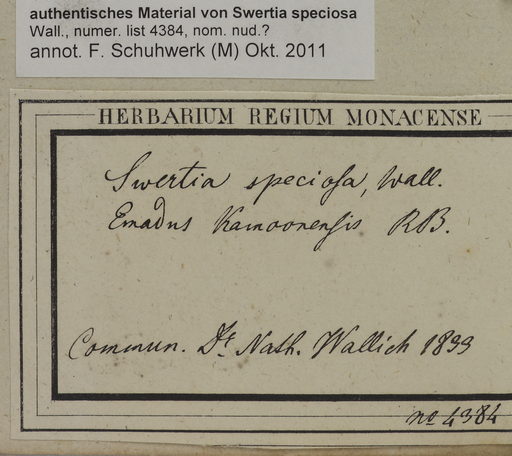 authentisches Material von Swertia speciosa
Wall., numer. list 4384, nom. nud.?
annot. F. Schuhwerk (M) Okt. 2011
HERBARIUM REGIUM MONACENSE
Swertia speciosa, Wall.
Emadus Kamoonensis RB.
Commun. Dr. Nath. Wallich 1833
no 4384